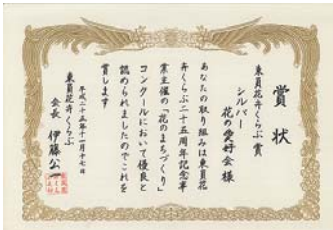 賞状
東員花弁くらぶ賞
シルバー
花の愛好会 様
あなたの取り組みは東員花
弁くらぶ二十五周年記念事
業主催の「花のまちづくり」
コンクールにおいて優良と
認められましたのでこれを
賞します
平成二十五年十一月十七日
東員花弁くらぶ
会長 伊藤公一